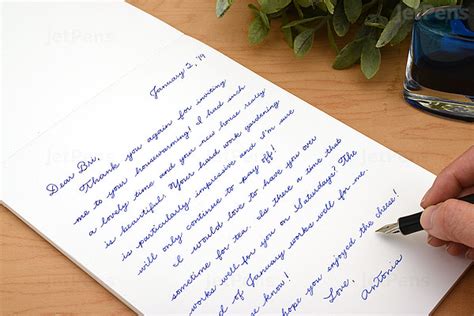 January 2, '19
Dear Bri,
Thank you again for inviting
me to your housewarming! I had such
a lovely time and your new house really
is beautiful! Your hard work gardening
is particularly impressive and I'm sure
will only continue to pay off!
I would love to have you over
sometime for tea. Is there a time that
works well for you on Saturdays? The
of January works well for me
know!
hope you enjoyed the cheese!
Love,
Antonia
JetPens